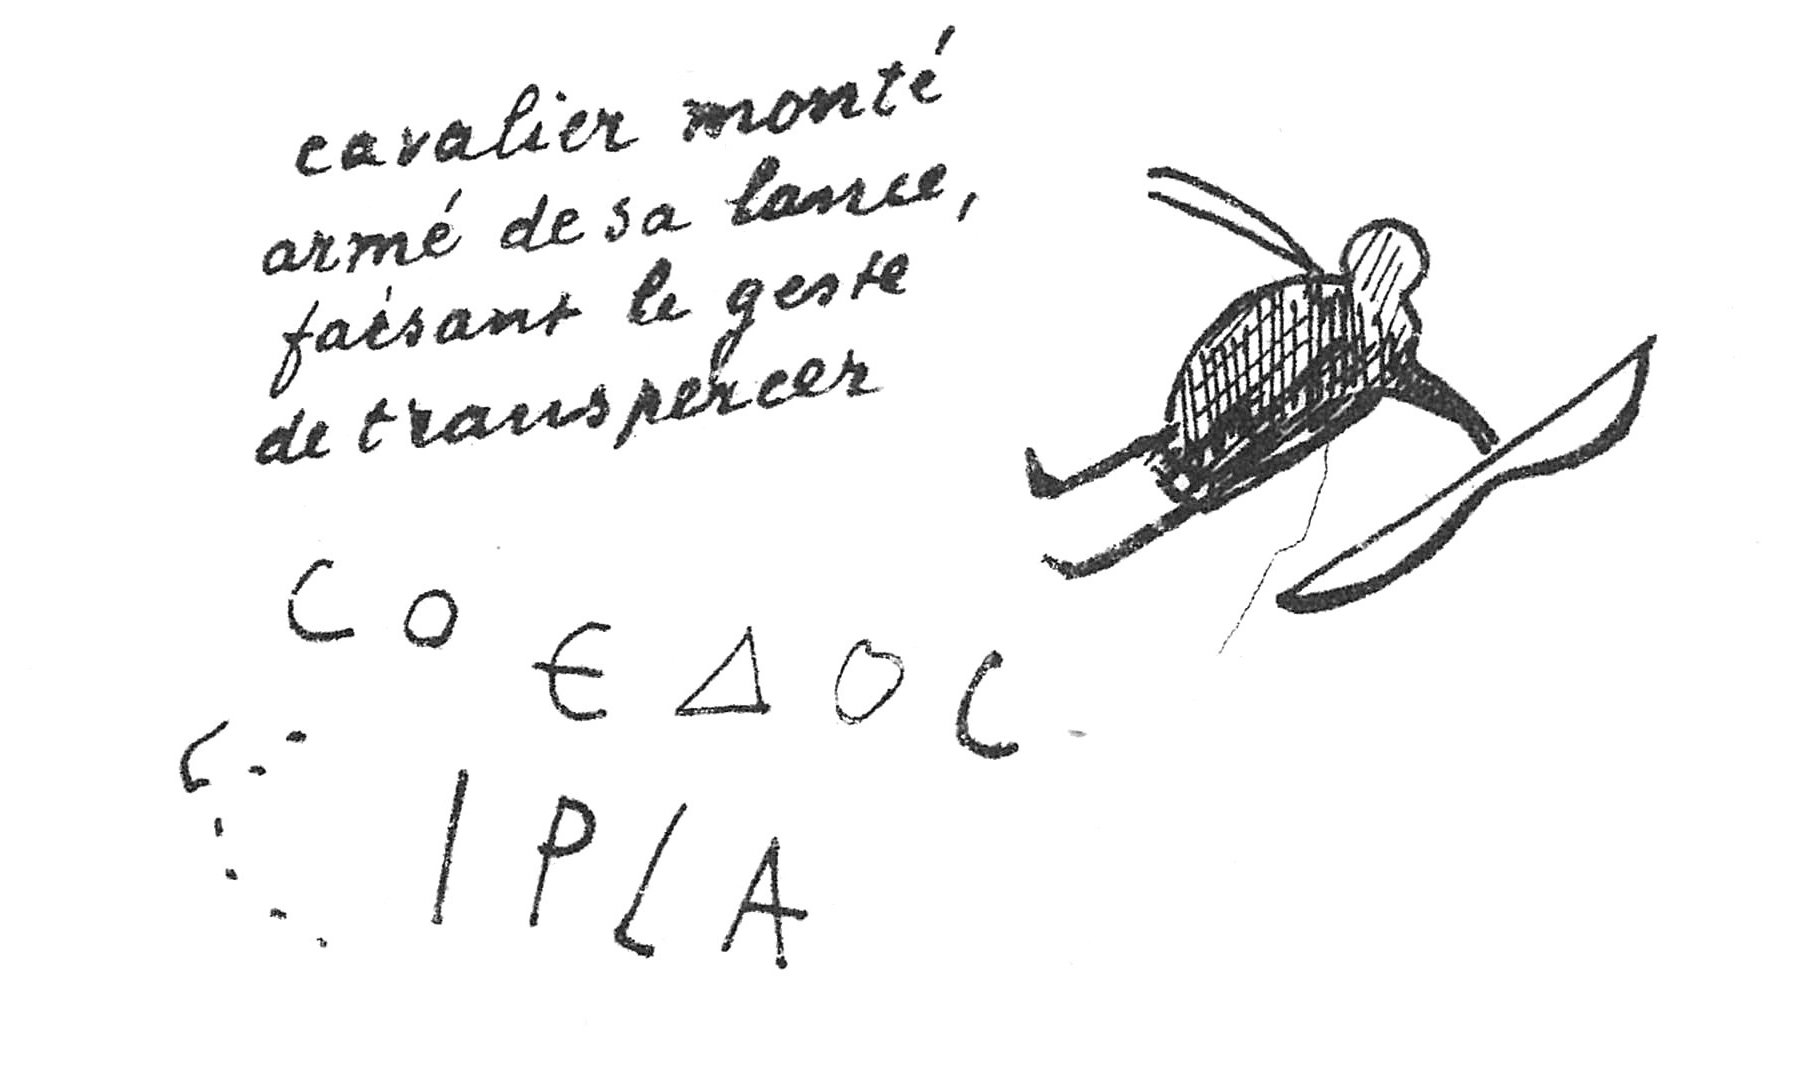 cavalier monté
armé de sa lance,
faisant le geste
de transpercer
C O Є Δ O C
C
I P L A